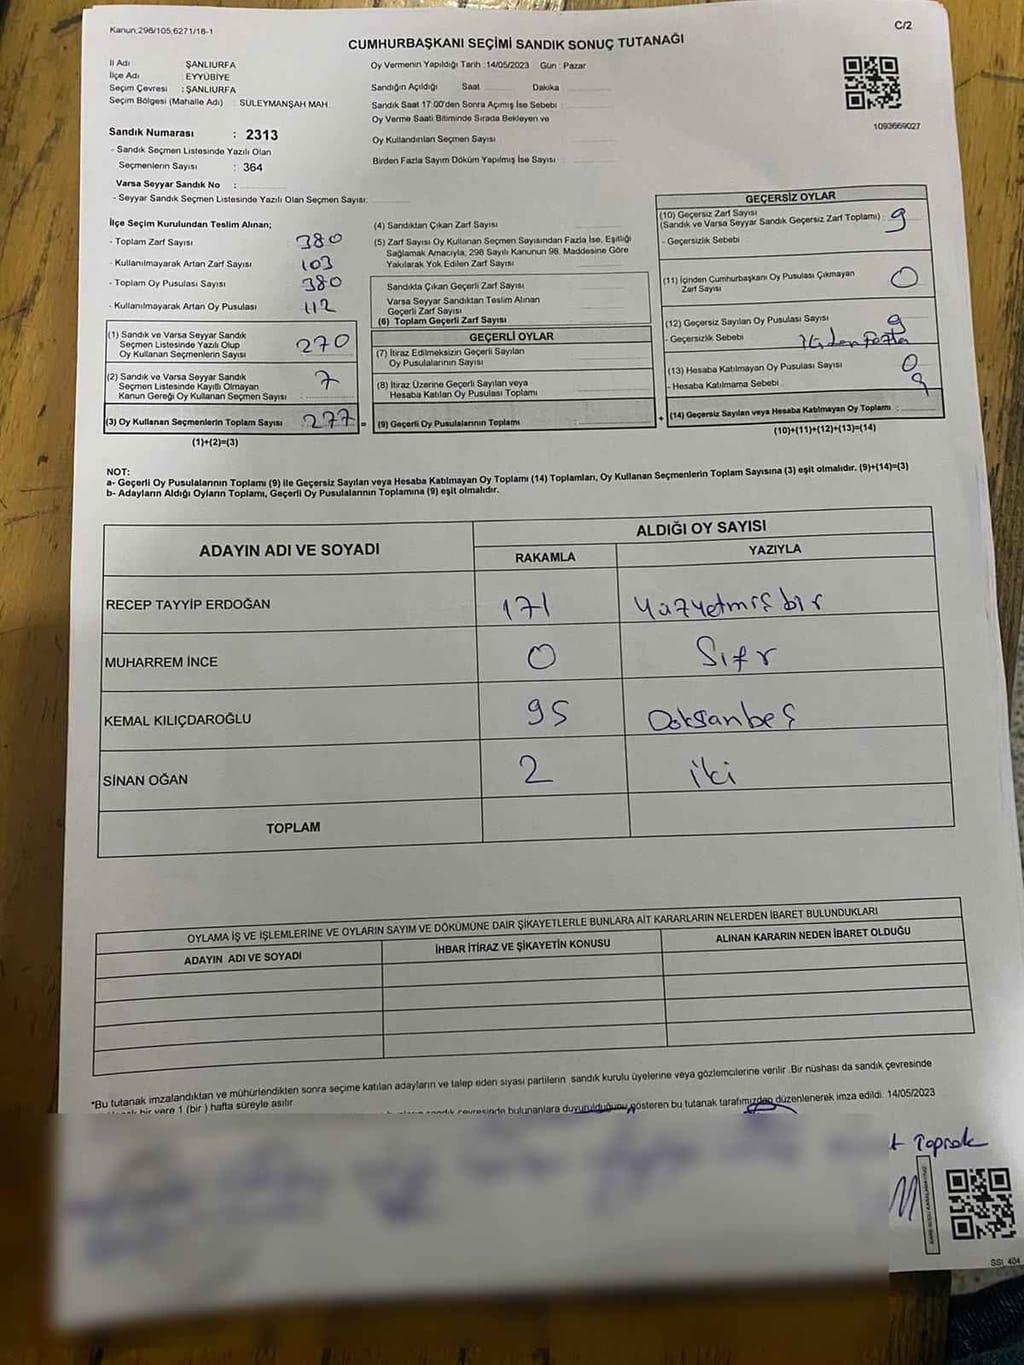 Kanun:298/105,6271/18-1
C/2
CUMHURBAŞKANI SEÇİMİ SANDIK SONUÇ TUTANAĞI
İl Adı ŞANLIURFA
İlçe Adı EYYÜBİYE
Seçim Çevresi : ŞANLIURFA
Seçim Bölgesi (Mahalle Adı) : SÜLEYMANŞAH MAH.
Sandık Numarası : 2313
- Sandık Seçmen Listesinde Yazılı Olan
Seçmenlerin Sayısı : 364
Varsa Seyyar Sandık No :
- Seyyar Sandık Seçmen Listesinde Yazılı Olan Seçmen Sayısı:
Oy Vermenin Yapıldığı Tarih :14/05/2023 Gün : Pazar
Sandığın Açıldığı Saat Dakika
Sandık Saat 17:00'den Sonra Açımış İse Sebebi
Oy Verme Saati Bitiminde Sırada Bekleyen ve
Oy Kullandırılan Seçmen Sayısı
Birden Fazla Sayım Döküm Yapılmış İse Sayısı
1093669027
İlçe Seçim Kurulundan Teslim Alınan;
- Toplam Zarf Sayısı 380
- Kullanılmayarak Artan Zarf Sayısı 103
- Toplam Oy Pusulası Sayısı 380
- Kullanılmayarak Artan Oy Pusulası 112
(1) Sandık ve Varsa Seyyar Sandık
Seçmen Listesinde Yazılı Olup
Oy Kullanan Seçmenlerin Sayısı 270
(2) Sandık ve Varsa Seyyar Sandık
Seçmen Listesinde Kayıtlı Olmayan
Kanun Gereği Oy Kullanan Seçmen Sayısı 7
(3) Oy Kullanan Seçmenlerin Toplam Sayısı 277 =
(1)+(2)=(3)
(4) Sandıktan Çıkan Zarf Sayısı
(5) Zarf Sayısı Oy Kullanan Seçmen Sayısından Fazla İse, Eşitliği
Sağlamak Amacıyla, 298 Sayılı Kanunun 98. Maddesine Göre
Yakılarak Yok Edilen Zarf Sayısı
Sandıkta Çıkan Geçerli Zarf Sayısı
Varsa Seyyar Sandıktan Teslim Alınan
Geçerli Zarf Sayısı
(6) Toplam Geçerli Zarf Sayısı
GEÇERLİ OYLAR
(7) İtiraz Edilmeksizin Geçerli Sayılan
Oy Pusulalarının Sayısı
(8) İtiraz Üzerine Geçerli Sayılan veya
Hesaba Katılan Oy Pusulası Toplamı
(9) Geçerli Oy Pusulalarının Toplamı : +
GEÇERSİZ OYLAR
(10) Geçersiz Zarf Sayısı
(Sandık ve Varsa Seyyar Sandık Geçersiz Zarf Toplamı) : 9
- Geçersizlik Sebebi
(11) İçinden Cumhurbaşkanı Oy Pusulası Çıkmayan
Zarf Sayısı 0
(12) Geçersiz Sayılan Oy Pusulası Sayısı 9
- Geçersizlik Sebebi
(13) Hesaba Katılmayan Oy Pusulası Sayısı 0
- Hesaba Katılmama Sebebi 9
(14) Geçersiz Sayılan veya Hesaba Katılmayan Oy Toplamı :
(10)+(11)+(12)+(13)=(14)
NOT:
a- Geçerli Oy Pusulalarının Toplamı (9) ile Geçersiz Sayılan veya Hesaba Katılmayan Oy Toplamı (14) Toplamları, Oy Kullanan Seçmenlerin Toplam Sayısına (3) eşit olmalıdır. (9)+(14)=(3)
b- Adayların Aldığı Oyların Toplamı, Geçerli Oy Pusulalarının Toplamına (9) eşit olmalıdır.
ADAYIN ADI VE SOYADI
ALDIĞI OY SAYISI
RAKAMLA YAZIYLA
RECEP TAYYİP ERDOĞAN 171 Yüzyetmiş bir
MUHARREM İNCE 0 Sıfır
KEMAL KILIÇDAROĞLU 95 Doksanbeş
SİNAN OĞAN 2 iki
TOPLAM
OYLAMA İŞ VE İŞLEMLERİNE VE OYLARIN SAYIM VE DÖKÜMÜNE DAİR ŞİKAYETLERLE BUNLARA AİT KARARLARIN NELERDEN İBARET BULUNDUKLARI
ADAYIN ADI VE SOYADI İHBAR İTİRAZ VE ŞİKAYETİN KONUSU ALINAN KARARIN NEDEN İBARET OLDUĞU
*Bu tutanak imzalandıktan ve mühürlendikten sonra seçime katılan adayların ve talep eden siyasi partilerin sandık kurulu üyelerine veya gözlemcilerine verilir .Bir nüshası da sandık çevresinde
bir yere 1 (bir ) hafta süreyle asılır
sandık çevresinde bulunanlara duyurulduğunu gösteren bu tutanak tarafımızdan düzenlenerek imza edildi. 14/05/2023
t Toprak
SSI 404